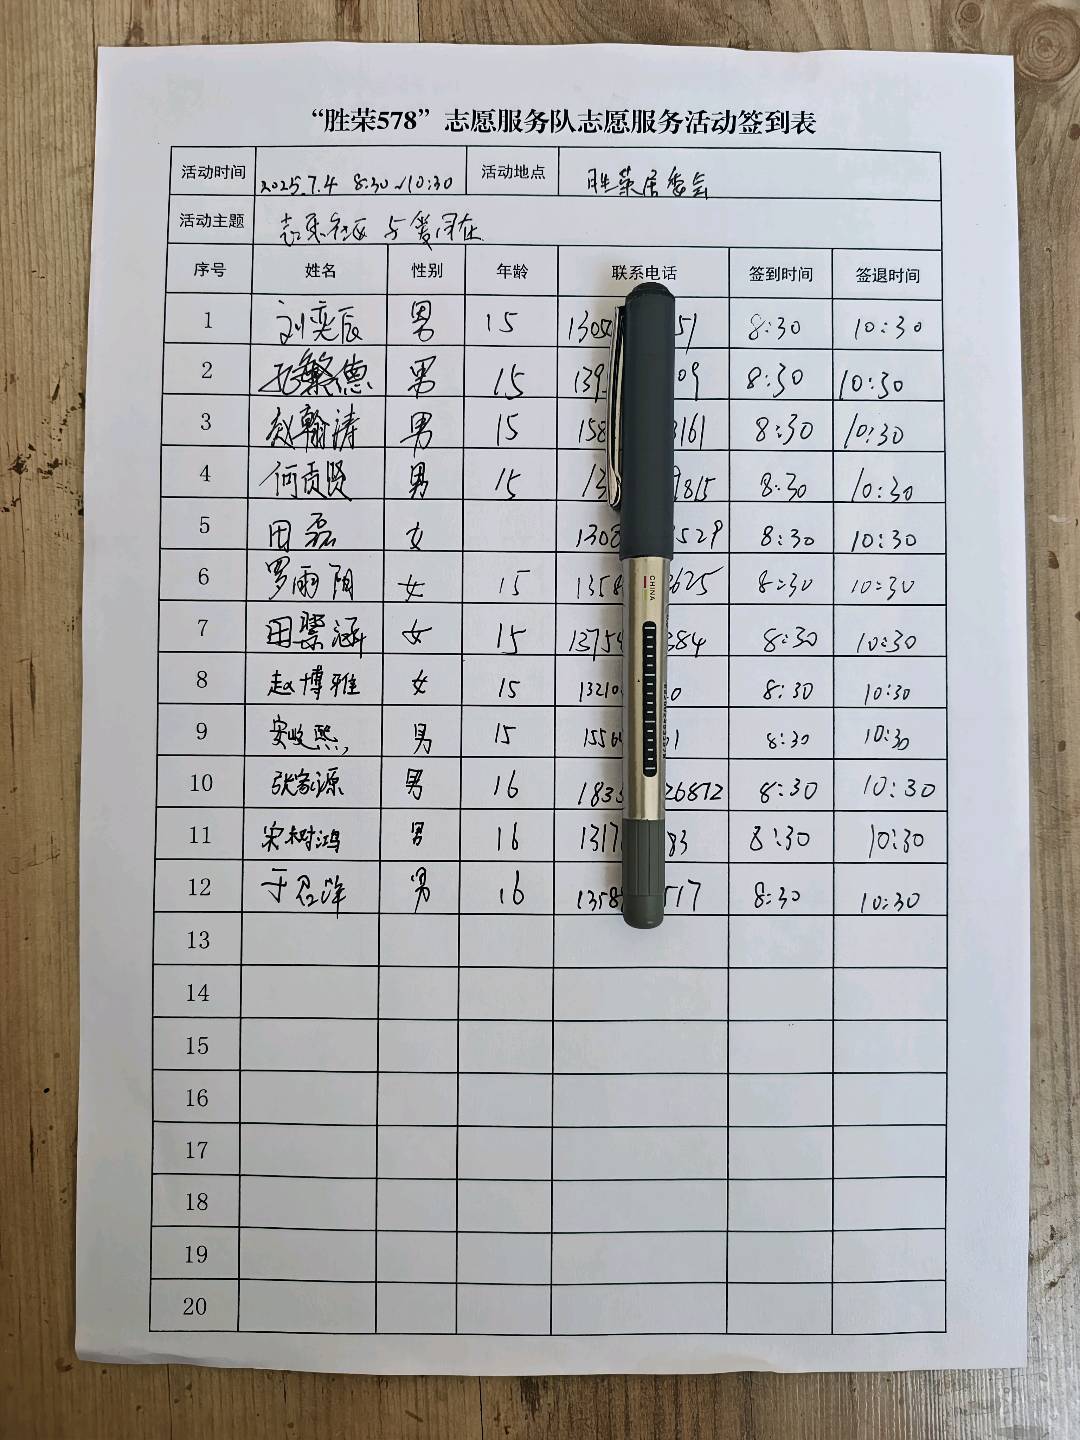 “胜荣578”志愿服务队志愿服务活动签到表
活动时间 2025.7.4 8:30~10:30 活动地点 胜荣居委会
活动主题 志愿社区 与爱同在
序号 姓名 性别 年龄 联系电话 签到时间 签退时间
1 刘奕辰 男 15 1305 51 8:30 10:30
2 孔繁德 男 15 139 09 8:30 10:30
3 赵翰涛 男 15 158 161 8:30 10:30
4 何贡贤 男 15 13 9815 8:30 10:30
5 田磊 女 1308 529 8:30 10:30
6 罗雨阳 女 15 1358 3625 8:30 10:30
7 田馨涵 女 15 13754 384 8:30 10:30
8 赵博雅 女 15 13210 0 8:30 10:30
9 安峻熙 男 15 1556 1 8:30 10:30
10 张家源 男 16 183 26872 8:30 10:30
11 宋树鸿 男 16 1317 83 8:30 10:30
12 于君洋 男 16 1358 517 8:30 10:30
13
14
15
16
17
18
19
20
CHINA